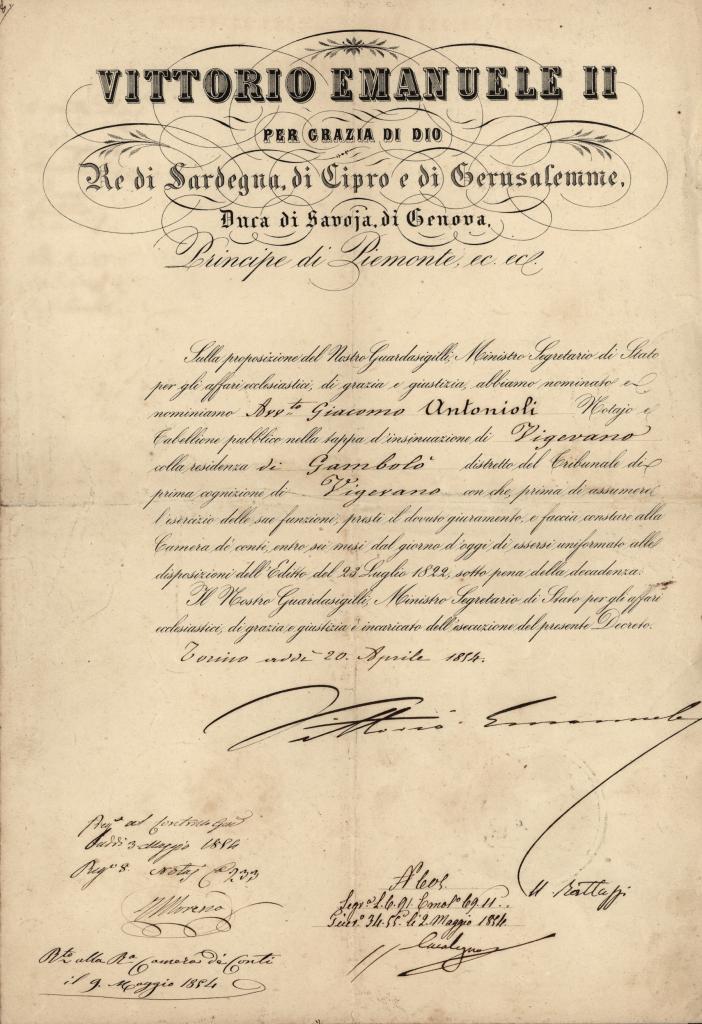 VITTORIO EMANUELE II
PER GRAZIA DI DIO
Re di Sardegna, di Cipro e di Gerusalemme,
Duca di Savoja, di Genova,
Principe di Piemonte, ec. ec.
Sulla proposizione del Nostro Guardasigilli, Ministro Segretario di Stato
per gli affari ecclesiastici, di grazia e giustizia, abbiamo nominato e
nominiamo Avv.to Giacomo Antonioli Notajo e
Tabellione pubblico nella tappa d'insinuazione di Vigevano
colla residenza di Gambolò distretto del Tribunale di
prima cognizione di Vigevano con che, prima di assumere
l'esercizio delle sue funzioni, presti il dovuto giuramento, e faccia constare alla
Camera di conti, entro sei mesi dal giorno d'oggi di essersi uniformato alle
disposizioni dell'Editto del 23 Luglio 1822, sotto pena della decadenza.
Il Nostro Guardasigilli, Ministro Segretario di Stato per gli affari
ecclesiastici, di grazia e giustizia è incaricato dell'esecuzione del presente Decreto.
Torino addì 20. Aprile 1854.
Vittorio Emanuele
Reg.o al Controllo Gen.
addì 3 Maggio 1854
Reg.o 8. Notaj C. 233
Moreno
U Rattazzi
N. 601.
Segr.a L. 6. 91. Emol.o 69. 11.
Giur.o 34. 55. li 2. Maggio 1854.
R.ta alla R.a Camera de Conti
il 9. Maggio 1854